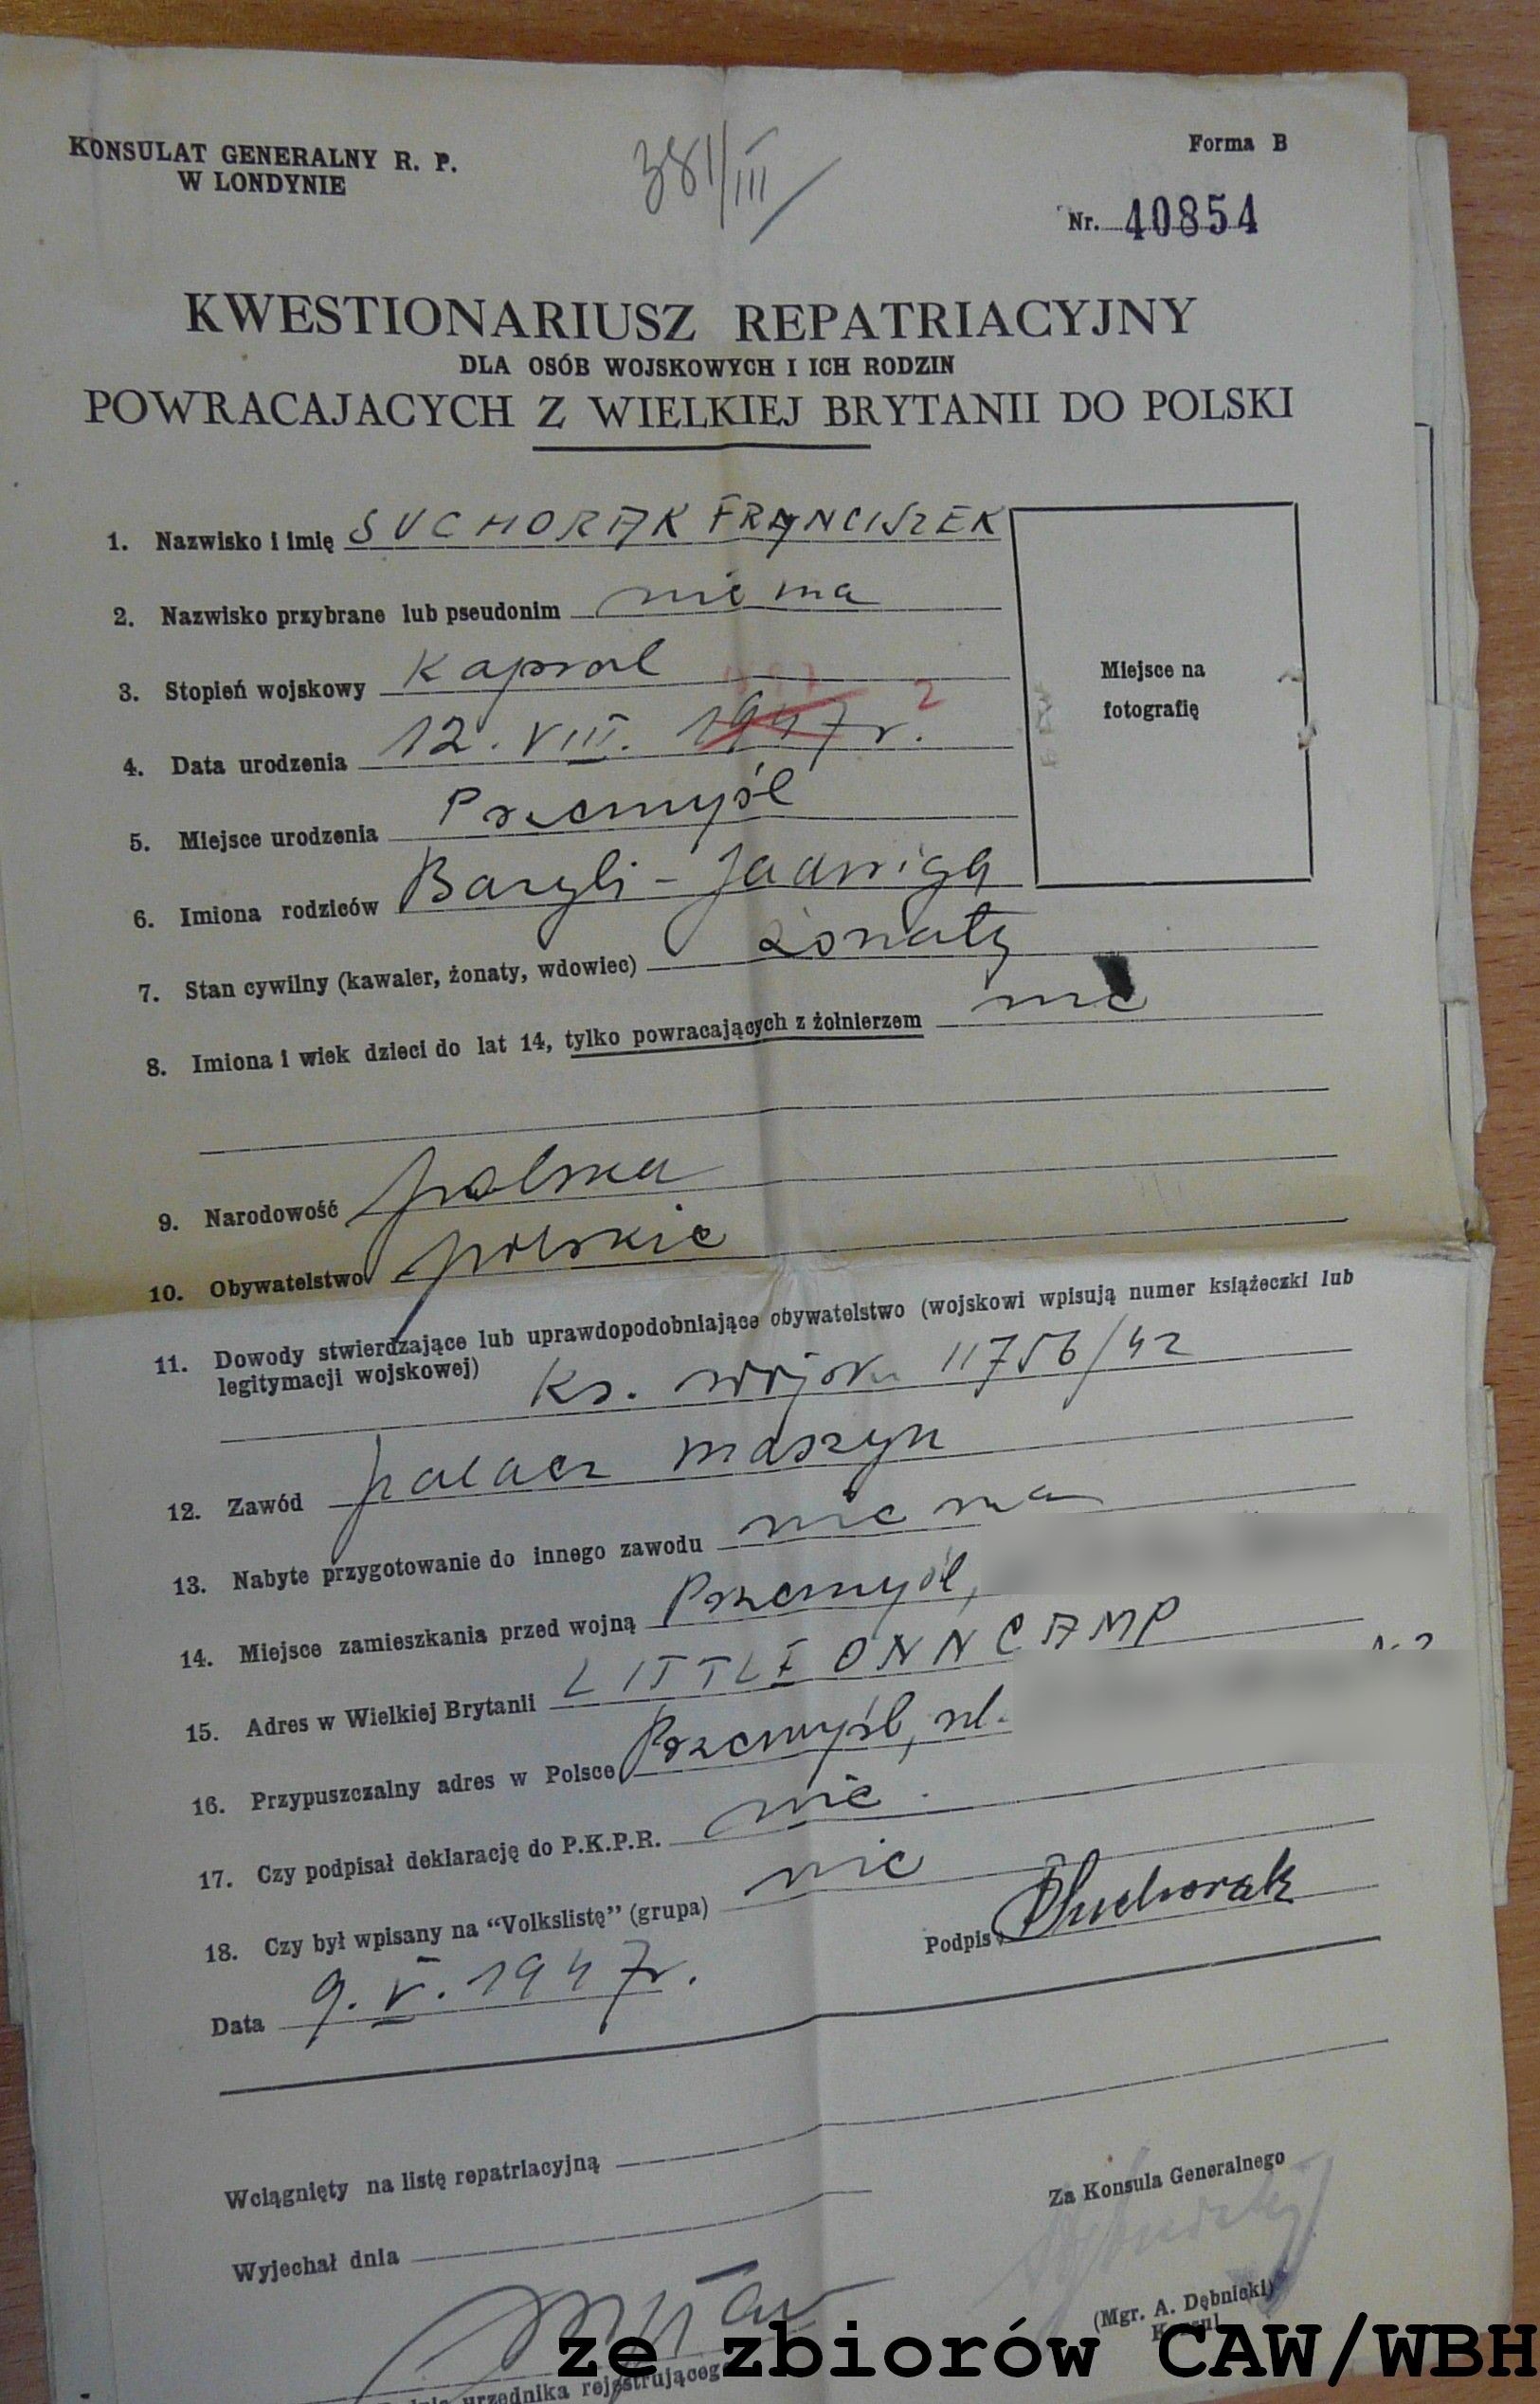 KONSULAT GENERALNY R. P.
W LONDYNIE
381/III
Forma B
Nr. 40854
KWESTIONARIUSZ REPATRIACYJNY
DLA OSÓB WOJSKOWYCH I ICH RODZIN
POWRACAJACYCH Z WIELKIEJ BRYTANII DO POLSKI
1. Nazwisko i imię SUCHORAK FRANCISZEK
2. Nazwisko przybrane lub pseudonim nie ma
3. Stopień wojskowy Kapral
4. Data urodzenia 12. VIII. 1947 r. 2
5. Miejsce urodzenia Przemyśl
6. Imiona rodziców Bazyli - Jadwiga
Miejsce na
fotografię
7. Stan cywilny (kawaler, żonaty, wdowiec) żonaty
8. Imiona i wiek dzieci do lat 14, tylko powracających z żołnierzem nie
9. Narodowość polska
10. Obywatelstwo polskie
11. Dowody stwierdzające lub uprawdopodobniające obywatelstwo (wojskowi wpisują numer książeczki lub
legitymacji wojskowej) ks. wojsk. 11756/42
12. Zawód palacz maszyn
13. Nabyte przygotowanie do innego zawodu nie ma
14. Miejsce zamieszkania przed wojną Przemyśl,
15. Adres w Wielkiej Brytanii LITTLE ONN CAMP
16. Przypuszczalny adres w Polsce Przemyśl, ul.
17. Czy podpisał deklarację do P.K.P.R. nie.
18. Czy był wpisany na "Volkslistę" (grupa) nie
Podpis FSuchorak
Data 9. V. 1947 r.
Wciągnięty na listę repatriacyjną
Wyjechał dnia
Za Konsula Generalnego
(Mgr. A. Dębnicki)
Konsul
urzędnika rejestrującego
ze zbiorów CAW/WBH